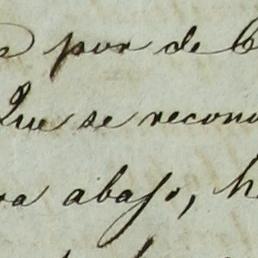 por de
Que se recono
ra abajo, h